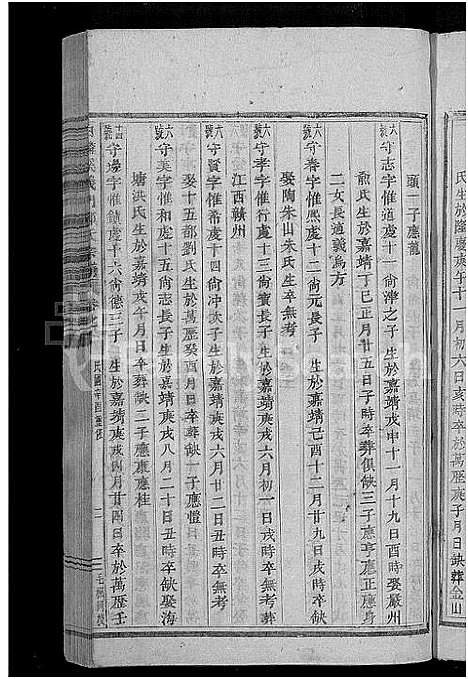 氏生於隆慶庚午十一月初六日亥時卒於萬歷庚子月日缺葬金山
頭一子應龍
守志字惟道處十一尚津之子 生於嘉靖戊申十一月十九日酉時娶嚴州
俞氏生於嘉靖丁巳正月廿五日子時卒葬俱缺三子應亨應正應身
二女長適義烏方
守春字惟熙處十二尚元長子 生於嘉靖己酉十二月廿九日戌時
娶陶朱山朱氏生卒無考
守孝字惟行處十三尚賓長子 生於嘉靖庚戌六月初一日亥時卒無考葬
江西贛州
守賢字惟希處十四尚冲次子 生於嘉靖庚戌六月廿二日丑時卒無考
娶十五都劉氏生於萬歷癸酉月日卒葬缺一子應愷
守美字惟和處十五尚志長子 生於嘉靖庚戌八月二十日丑時卒缺娶海
塘洪氏生於嘉靖戊午月日卒葬缺三子應東應桂
守邊字惟鎮處十六尚德三子 生於嘉靖庚戌四月廿四日卒於萬歷壬